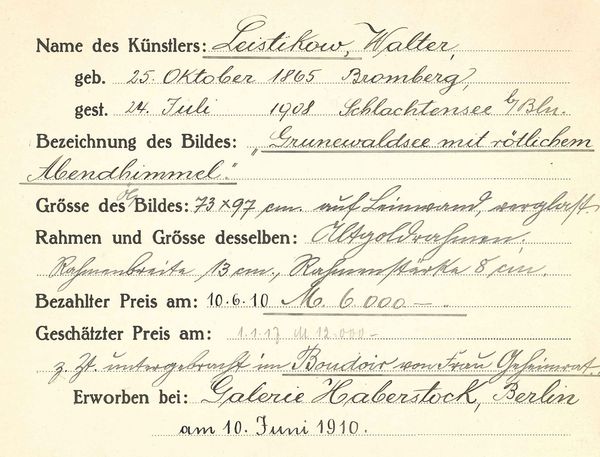 Name des Künstlers: Leistikow, Walter,
geb. 25. Oktober 1865 Bromberg,
gest. 24. Juli 1908 Schlachtensee b/Bln.
Bezeichnung des Bildes: "Grunewaldsee mit rötlichem
Abendhimmel."
Grösse des Bildes: 73 x 97 cm. auf Leinwand, verglast
Rahmen und Grösse desselben: Altgoldrahmen.
Rahmenbreite 13 cm., Rahmenstärke 8 cm.
Bezahlter Preis am: 10.6.10 M. 6.000 —.
Geschätzter Preis am: 1.1.17 M 12.000.-
z. Zt. untergebracht im Boudoir von Frau Geheimrat.
Erworben bei: Galerie Haberstock, Berlin
am 10. Juni 1910.